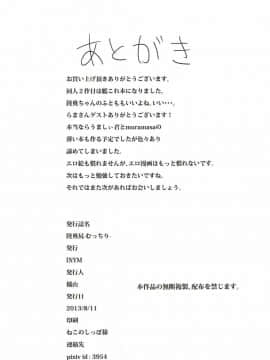 あとがき
お買い上げ頂きありがとうございます。
同人2作目は艦これ本になりました。
陸奥ちゃんのふとももいいよね。いい・・・。
らまさんゲストありがとうございます！
本当ならうましぃ君とmuramasaの
薄い本も作る予定でしたが色々あり
諦めてしまいました。
エロ絵も慣れませんが、エロ漫画はもっと慣れないです。
次はもっと勉強しておきたいですね。
それではまた次があればお会いしましょう。
発行誌名
陸奥尻 むっちり
発行
INYM
発行人
橘由
発行日
2013/8/11
印刷
ねこのしっぽ様
連絡先
pixiv id : 3954
本作品の無断複製、配布を禁じます。